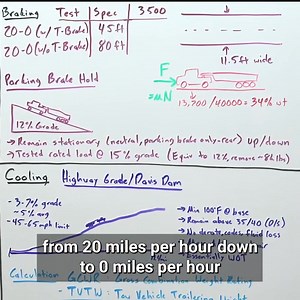 Braking Test Spec 3500
20-0 (w/T-Brake) 45ft
20-0 (w/o T-Brake) 80ft
11.5ft wide
Parking Brake Hold
F
=μN
13,700 / 40000 = 34% wt
12% Grade
→ Remain stationary (neutral, parking brake only-rear) up/down
→ Tested rated load @ 15% grade
Cooling Highway Grade/Davis Dam
- 3-7% grade
- 5% avg
- 45-65mph limit
→ Min 100°F @ base
→ Remain above 35/40
→ No derate, codes, fluid loss
from 20 miles per hour down
to 0 miles per hour
Essentially WOT
Calculation - GCWR - Gross Combination Weight Rating
- TVTW: Tow Vehicle Trailering Weight